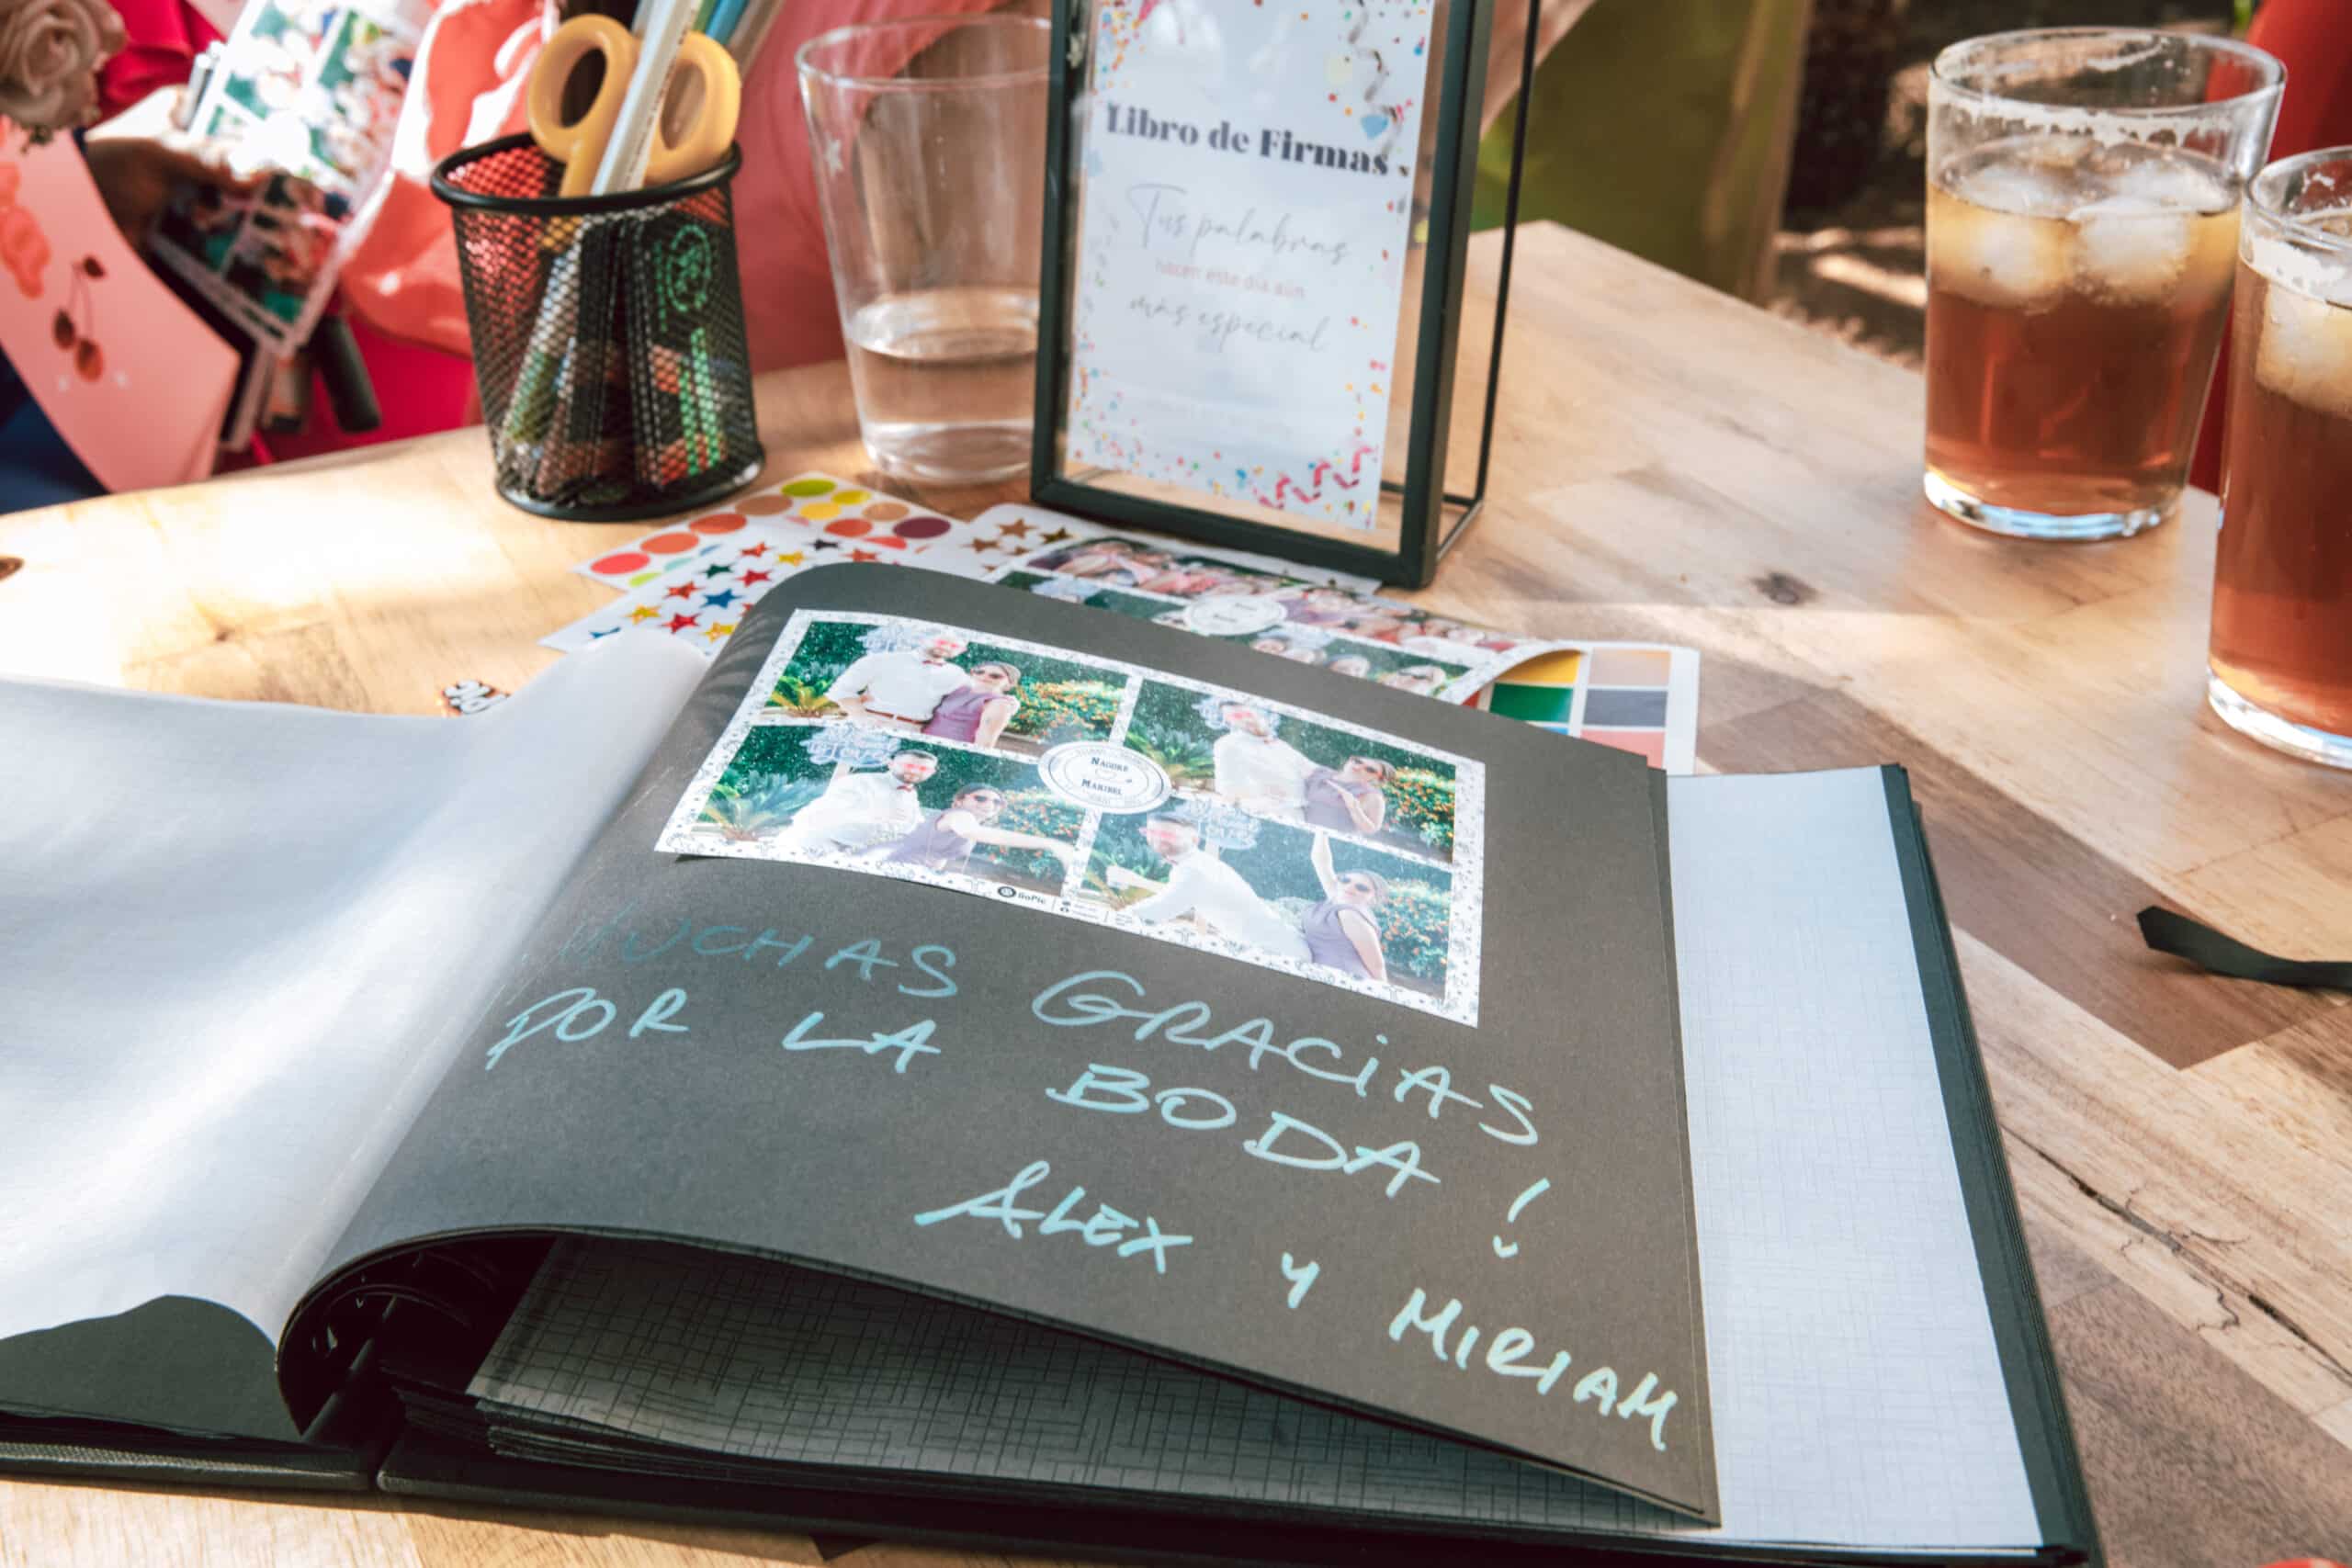 Libro de Firmas
Tus palabras
hacen este día aún
más especial
NAGORE
MARIBEL
GoPic
MUCHAS GRACiAS
POR LA BODA!
ALEX Y MIRIAM